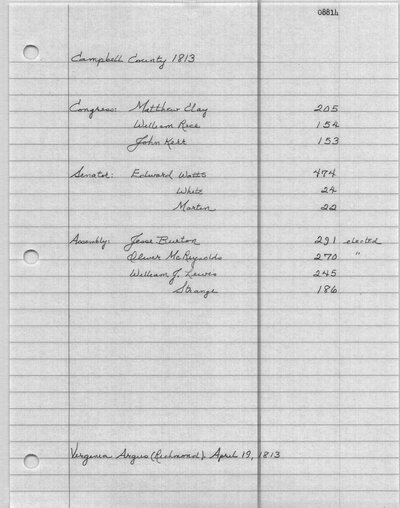 08814
Campbell County 1813
Congress: Matthew Clay 205
William Rice 154
John Kerr 153
Senator: Edward Watts 474
White 24
Martin 22
Assembly: Jesse Burton 291 elected
Oliver McReynolds 270 "
William J. Lewis 245
Strange 186
Virginia Argus (Richmond). April 19, 1813